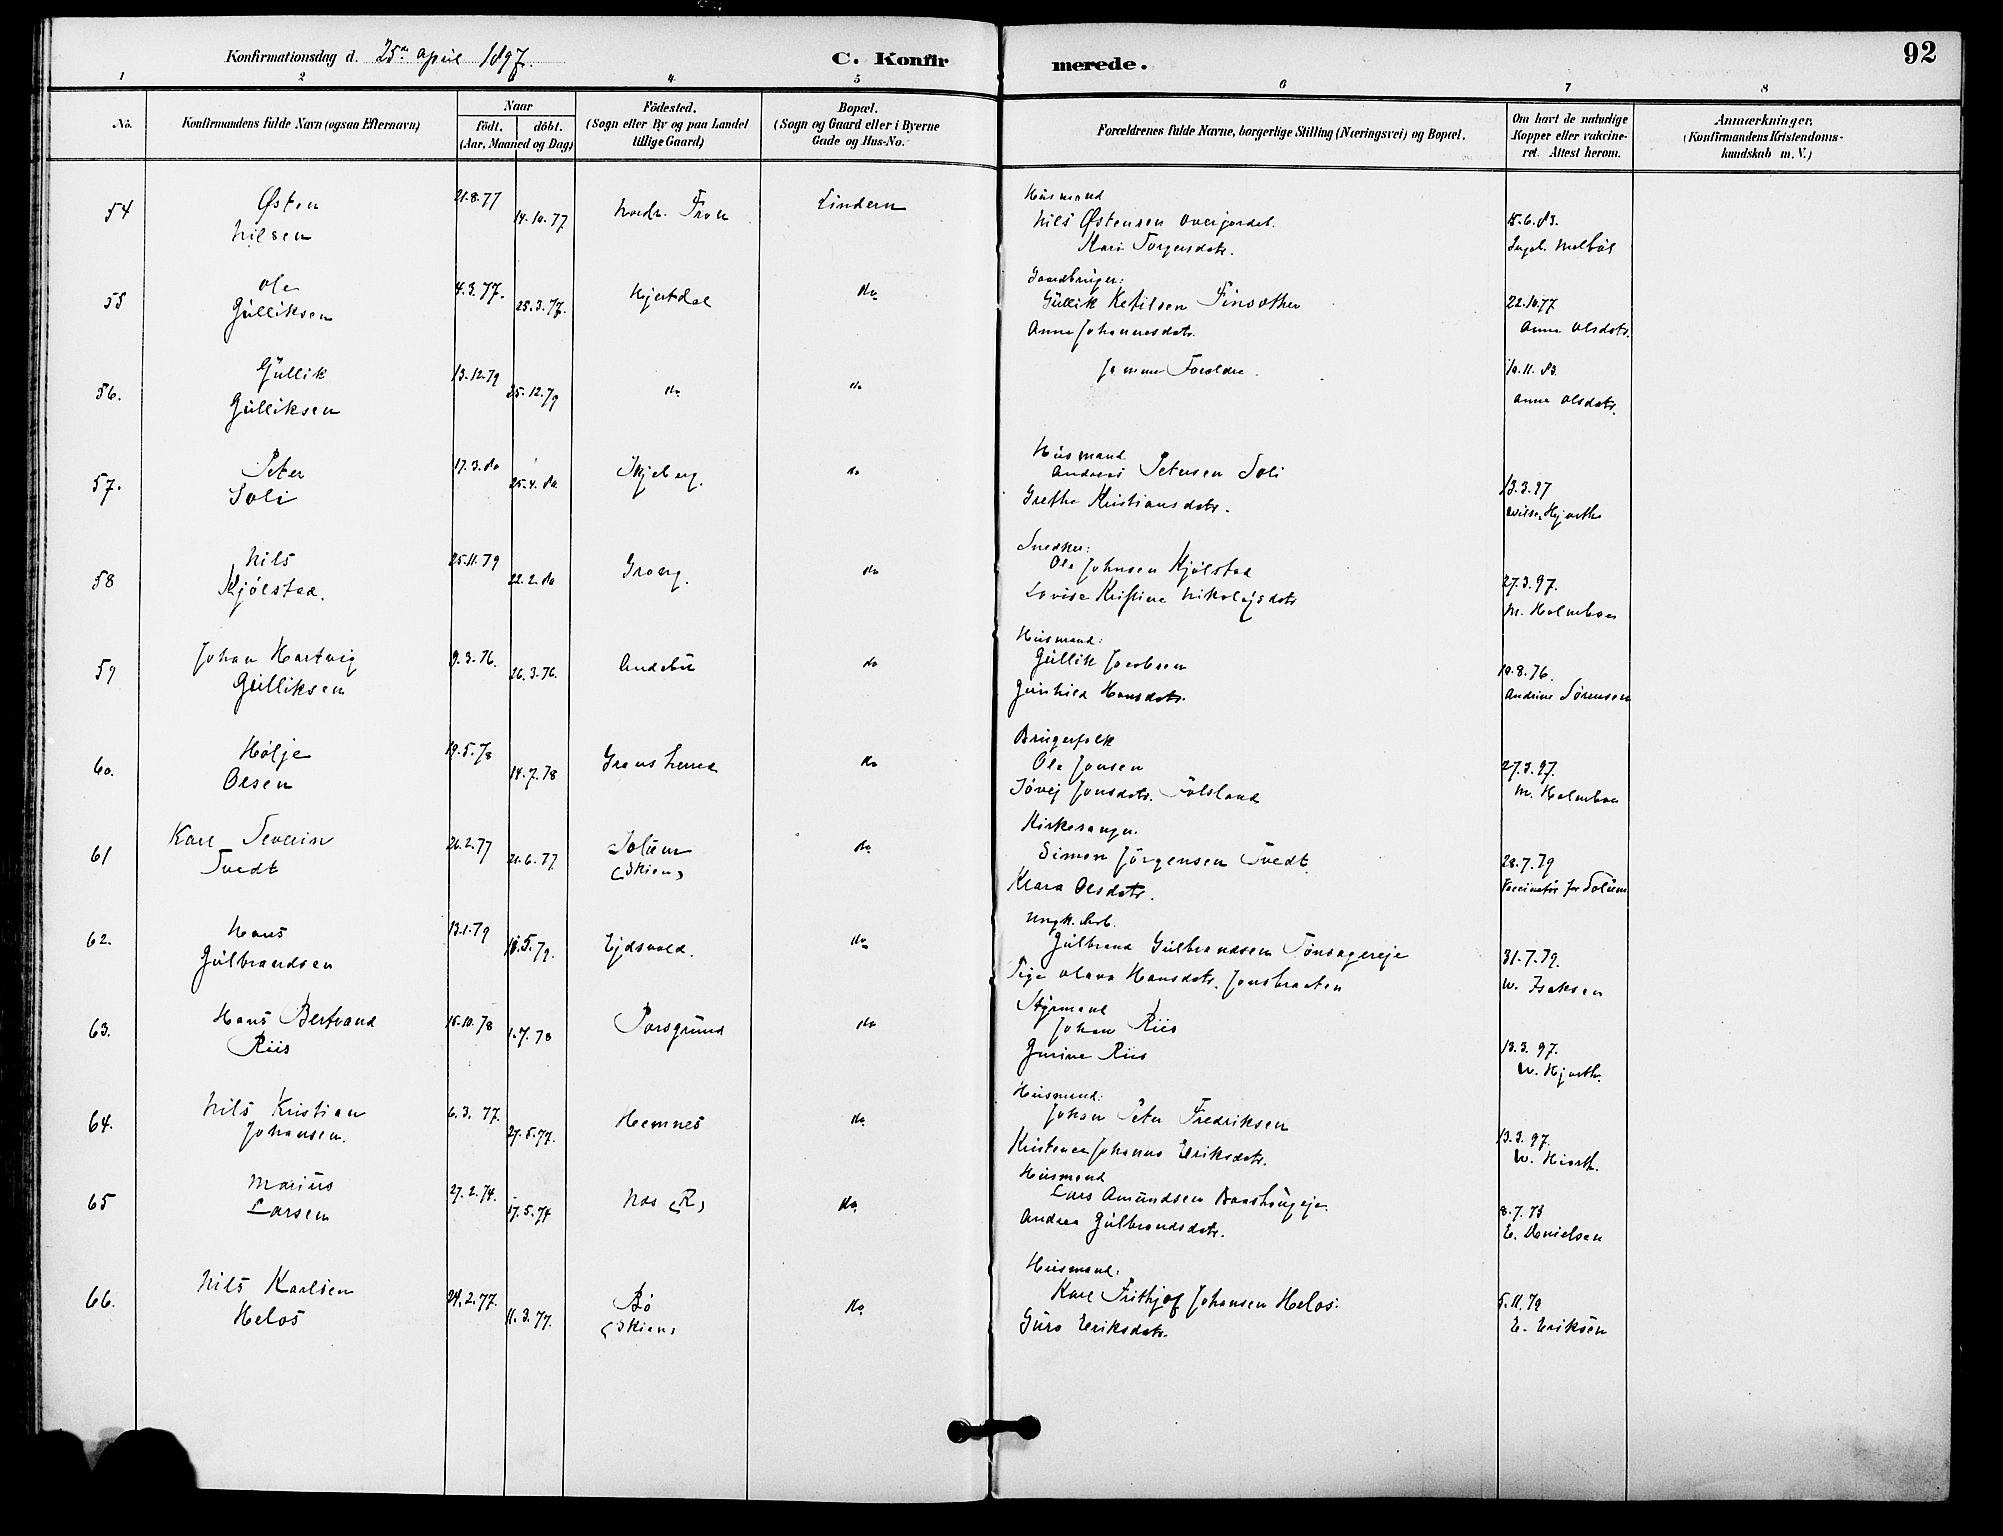 Konfirmationsdag d. 25de april 1897.
C. Konfirmerede.
92
1 2 4 5 6 7 8
No.
Konfirmandens fulde Navn (ogsaa Efternavn)
Naar
födt. döbt.
(Aar, Maaned og Dag)
Födested.
(Sogn eller By og paa Landet
tillige Gaard)
Bopæl.
(Sogn og Gaard eller i Byerne
Gade og Hus-No.
Forældrenes fulde Navne, borgerlige Stilling (Næringsvei) og Bopæl.
Om havt de naturlige
Kopper eller vakcine-
ret. Attest herom.
Anmærkninger,
(Konfirmandens Kristendoms-
kundskab m. V.)
54
Østen
Nilsen
21.8.77
14.10.77
Nordr. Fron
Lindern
Husmand
Nils Østensen
Mari Torgersdatr.
15.6.83.
Ingeb. Melbøl
55
Ole
Gulliksen
4.3.77.
25.3.77.
Hjertdal
do
Gaardbruger:
Gullik Ketilsen
Anne Johannesdatr.
22.10.77
Anne Olsdatr.
56.
Gullik
Gulliksen
13.12.79
25.12.79
do
do
Samme Foreldre.
10.11.83.
Anne Olsdatr.
57.
Peter
Soli
17.3.80
25.4.80
Skjeberg.
do
Husmand
Andreas Petersen Soli
Grethe Kristiansdatr.
13.3.97
Hjorth
58
Nils
Kjölstad.
25.11.79
22.2.80
Grong.
do
Snedker:
Ole Johnsen Kjölstad
Lovise Kristine Nikolajsdatr
27.3.97.
M. Holmboe
59
Johan Hartvig
Gulliksen
9.3.76.
26.3.76.
Andebu
do
Husmand:
Gullik Jacobsen
Gunhild Hansdatr.
10.8.76.
Andrine Sörensen
60.
Hölje
Olsen
19.5.78
14.7.78
Gransherred
do
Brugerfolk
Ole Jonsen
Jonsdatr.
27.3.97.
M. Holmboe
61
Karl Severin
Tvedt
26.2.77
21.6.77
Solum
(Skien)
do
Kirkesanger.
Simon Jörgensen Tvedt.
Klara Olsdatr.
28.7.79
Vaccinatör for Solum
62.
Hans
Gulbrandsen
13.1.79
18.5.79.
Ejdsvold.
do
Ungk. Arb.
Gulbrand Gulbrandsen
Pige Olava Hansdatr. Jonsbraaten
31.7.79.
W. Isaksen
63.
Hans Bertrand
Riis
15.10.78
1.7.78
Porsgrund
do
Styrmand
Johan Riis
Gurine Riis
13.3.97.
W. Hjorth.
64.
Nils Kristian
Johansen.
6.3.77.
27.5.77.
Hemnes
do
Husmand:
Johan Peter Fredriksen
Johanna Eriksdatr.
13.3.97.
W. Hiorth.
65
Marius
Larsen
27.2.74.
17.5.74
Nes (R)
do
Husmand
Lars Amundsen
Andrea Gulbrandsdatr.
8.7.75
E. Danielsen
66.
Nils Karlsen
Helos
24.2.77.
11.3.77.
Bö
(Skien)
do
Husmand:
Karl Frithjof Johansen Helos.
Guro Eriksdatr.
5.11.79
E. Eriksen